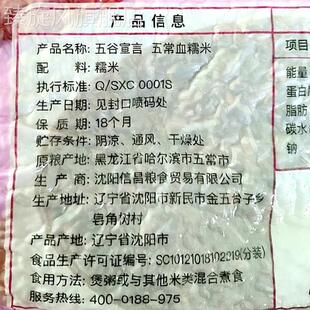 产品信息
产品名称：五谷宣言 五常血糯米
配 料：糯米
执行标准：Q/SXC 0001S
生产日期：见封口喷码处
保 质 期：18个月
贮存条件：阴凉、通风、干燥处
原粮产地：黑龙江省哈尔滨市五常市
生 产 商：沈阳信昌粮食贸易有限公司
生产地址：辽宁省沈阳市新民市金五台子乡
皂角树村
产品产地：辽宁省沈阳市
食品生产许可证编号：SC10121018102919(分装)
食用方法：煲粥或与其他米类混合煮食
服务热线：400-0188-975
项目
能量
蛋白质
脂肪
碳水
钠